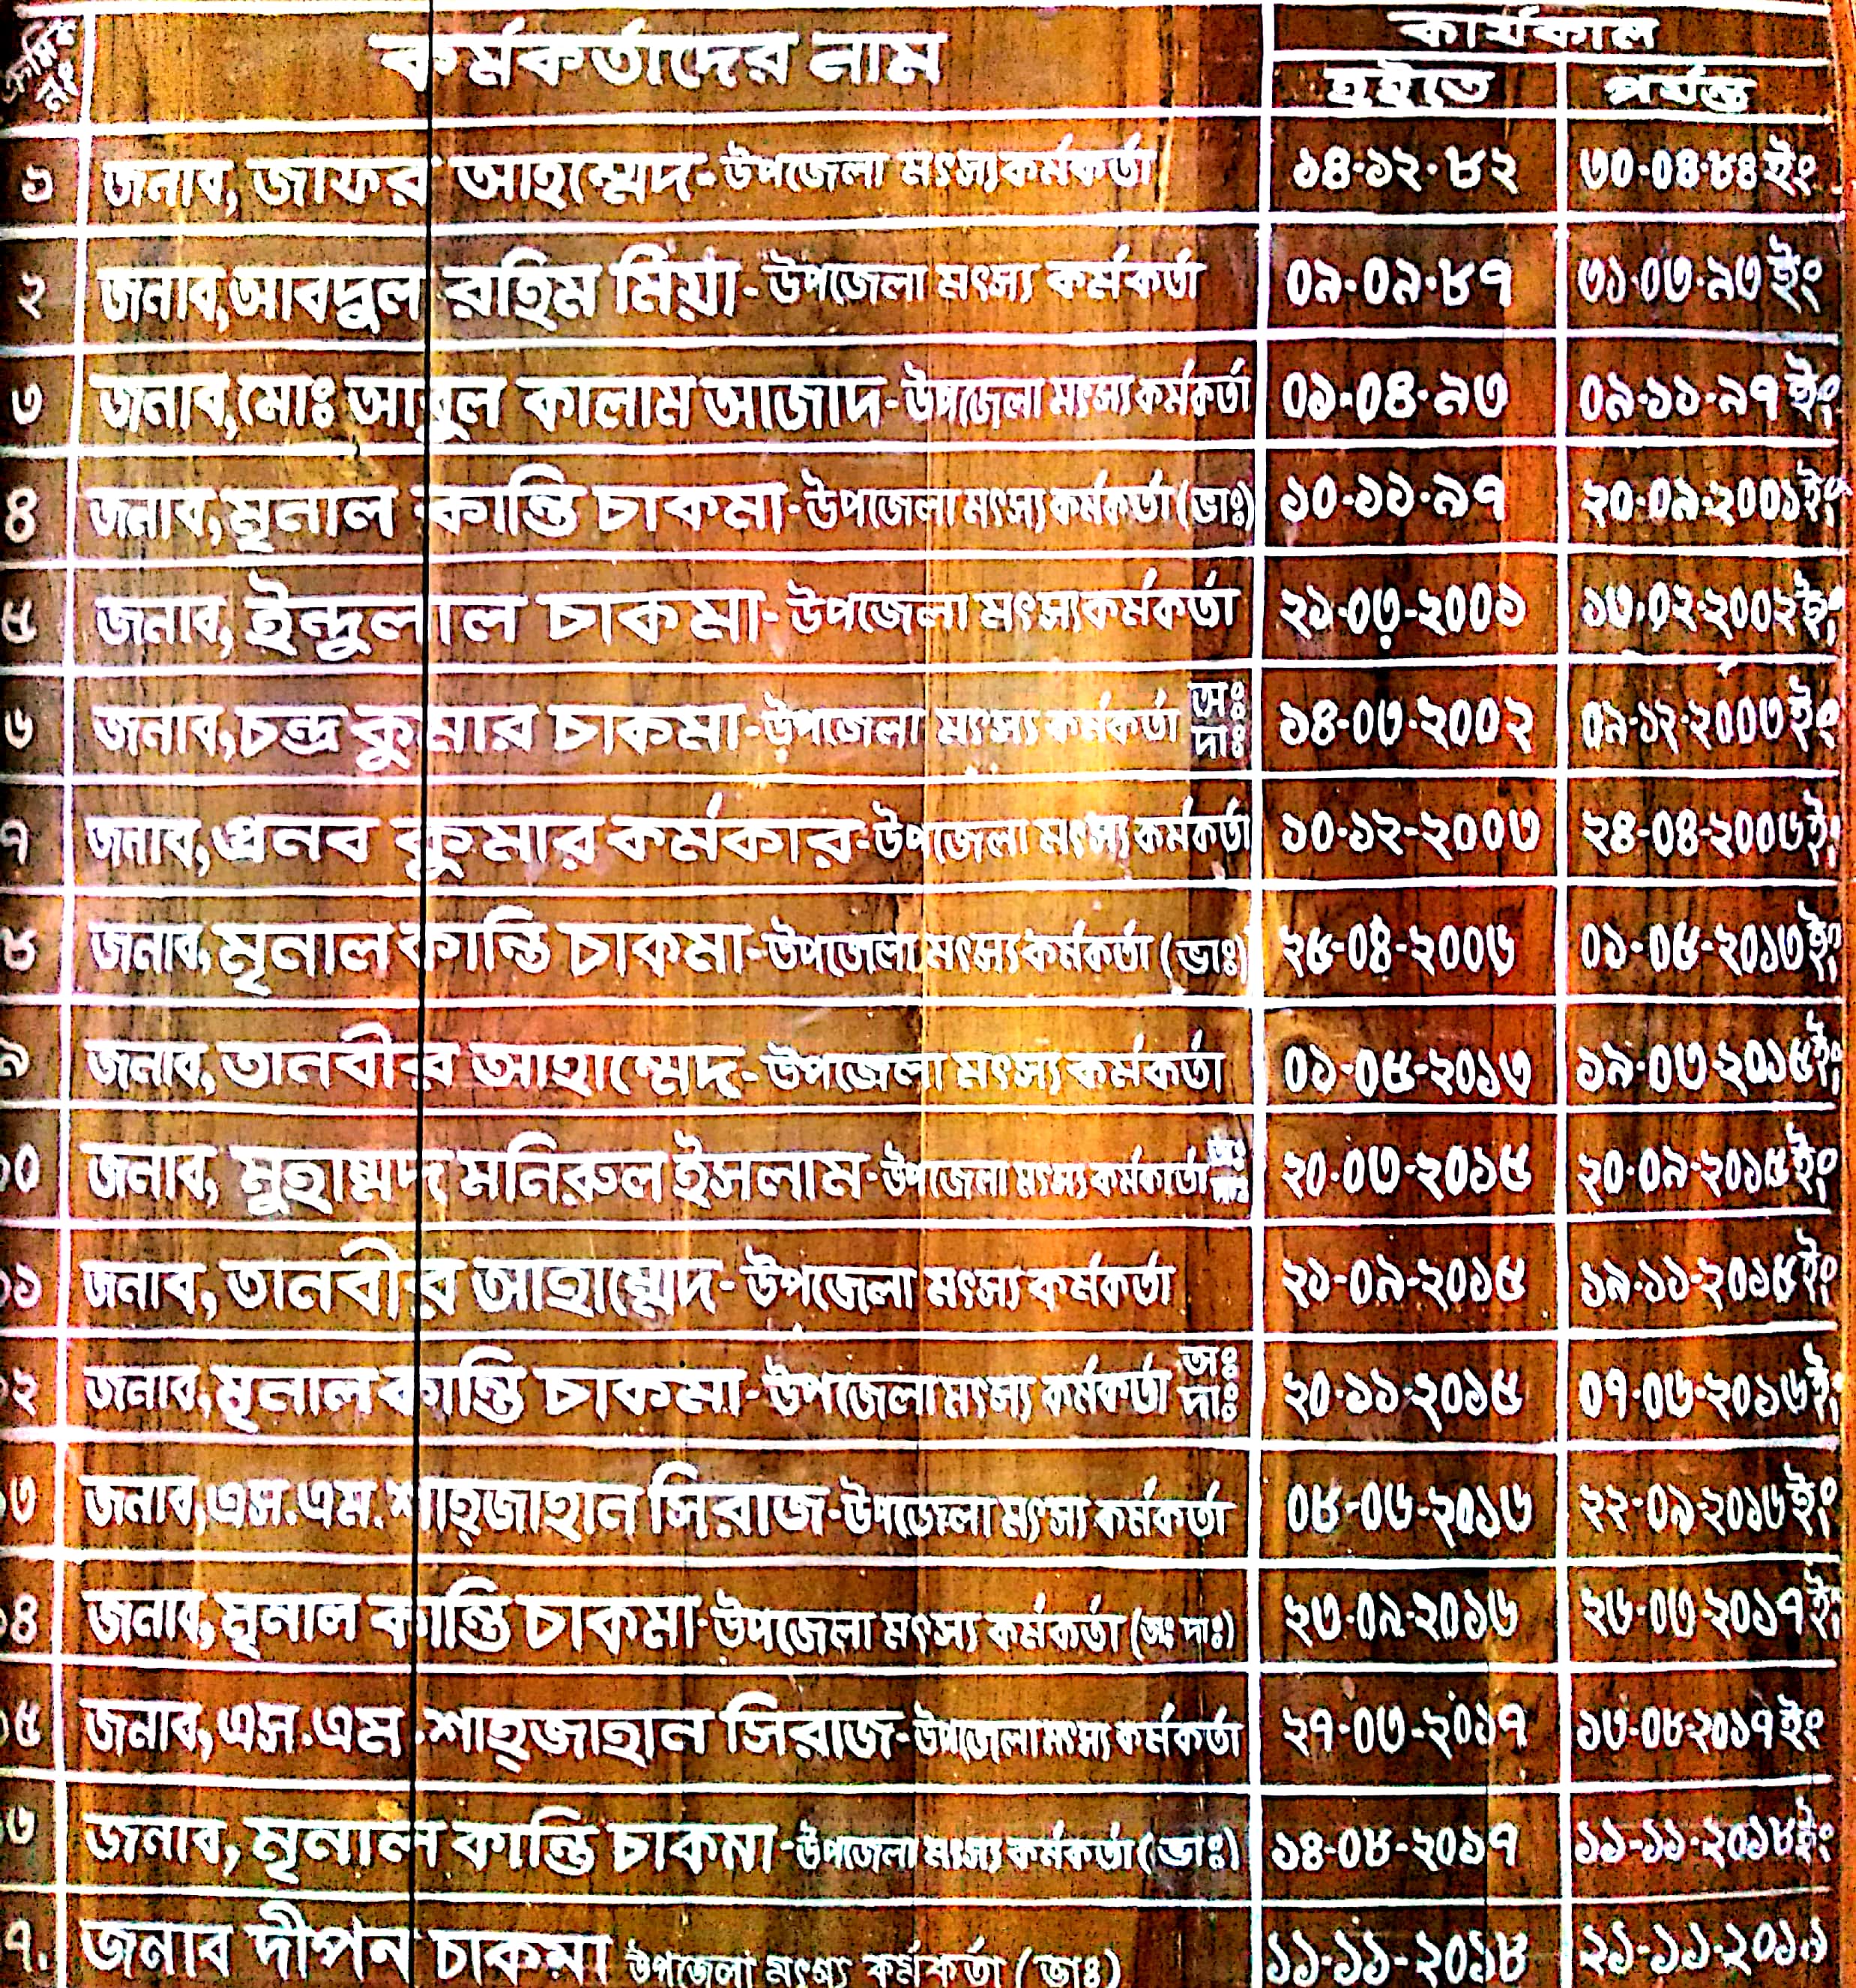 ক্রমিক নং কর্মকর্তাদের নাম কার্যকাল
হইতে পর্যন্ত
১ জনাব, জাফর আহম্মেদ-উপজেলা মৎস্যকর্মকর্তা ১৪-১২-৮২ ৩০-০৪-৮৪ ইং
২ জনাব,আবদুল রহিম মিঁয়া-উপজেলা মৎস্য কর্মকর্তা ০৯-০৯-৮৭ ৩১-০৩-৯৩ ইং
৩ জনাব,মোঃ আবুল কালাম আজাদ-উপজেলা মৎস্য কর্মকর্তা ০১-০৪-৯৩ ০৯-১১-৯৭ ইং
৪ জনাব,মৃনাল কান্তি চাকমা-উপজেলা মৎস্য কর্মকর্তা (ভাঃ) ১০-১১-৯৭ ২০-০৯-২০০১ইং
৫ জনাব, ইন্দুলাল চাকমা-উপজেলা মৎস্যকর্মকর্তা ২১-০৩-২০০১ ১৩-০২-২০০২ইং
৬ জনাব,চন্দ্র কুমার চাকমা-উপজেলা মৎস্য কর্মকর্তা অঃ দাঃ ১৪-০৩-২০০২ ০৯-১২-২০০৩ ইং
৭ জনাব,প্রনব কুমার কর্মকার-উপজেলা মৎস্য কর্মকর্তা ১০-১২-২০০৩ ২৪-০৪-২০০৬ইং
৮ জনাব, মৃনাল কান্তি চাকমা-উপজেলা মৎস্য কর্মকর্তা (ভাঃ) ২৫-০৪-২০০৬ ০১-০৫-২০১৩ইং
৯ জনাব, তানবীর আহাম্মেদ-উপজেলা মৎস্য কর্মকর্তা ০১-০৫-২০১৩ ১৯-০৩-২০১৫ইং
১০ জনাব, মুহাম্মদ মনিরুল ইসলাম-উপজেলা মৎস্য কর্মকার্তা ২০-০৩-২০১৫ ২০-০৯-২০১৫ইং
১১ জনাব, তানবীর আহাম্মেদ-উপজেলা মৎস্য কর্মকর্তা ২১-০৯-২০১৫ ১৯-১১-২০১৫ইং
১২ জনাব,মৃনাল কান্তি চাকমা-উপজেলা মৎস্য কর্মকর্তা অঃ দাঃ ২০-১১-২০১৫ ০৭-০৬-২০১৬ইং
১৩ জনাব,এস.এম.শাহ্জাহান সিরাজ-উপজেলা মৎস্য কর্মকর্তা ০৮-০৬-২০১৬ ২২-০৯-২০১৬ইং
১৪ জনাব,মৃনাল কান্তি চাকমা-উপজেলা মৎস্য কর্মকর্তা (অঃ দাঃ) ২৩-০৯-২০১৬ ২৬-০৩-২০১৭ইং
১৫ জনাব,এস.এম.শাহ্জাহান সিরাজ-উপজেলা মৎস্য কর্মকর্তা ২৭-০৩-২০১৭ ১৩-০৮-২০১৭ ইং
১৬ জনাব, মৃনাল কান্তি চাকমা-উপজেলা মৎস্য কর্মকর্তা (ভাঃ) ১৪-০৮-২০১৭ ১১-১১-২০১৮ইং
৭. জনাব দীপন চাকমা উপজেলা মৎস্য কর্মকর্তা (ভাঃ) ১১-১১-২০১৮ ২১-১১-২০১৯